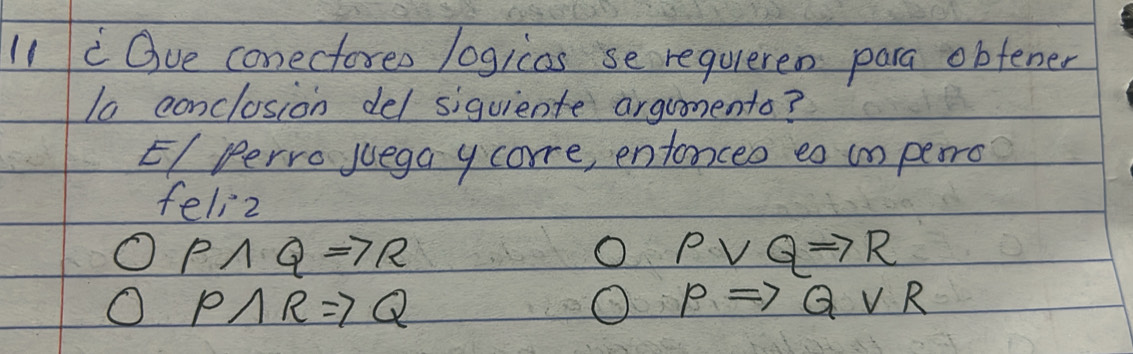 11 ¿Que conectores logicos se requieren para obtener
la conclusión del siguiente argumento?
El perro juega y corre, entonces es un perro
feliz
○ P ∧ Q => R ○ P ∨ Q => R
○ P ∧ R => Q ○ P => Q ∨ R